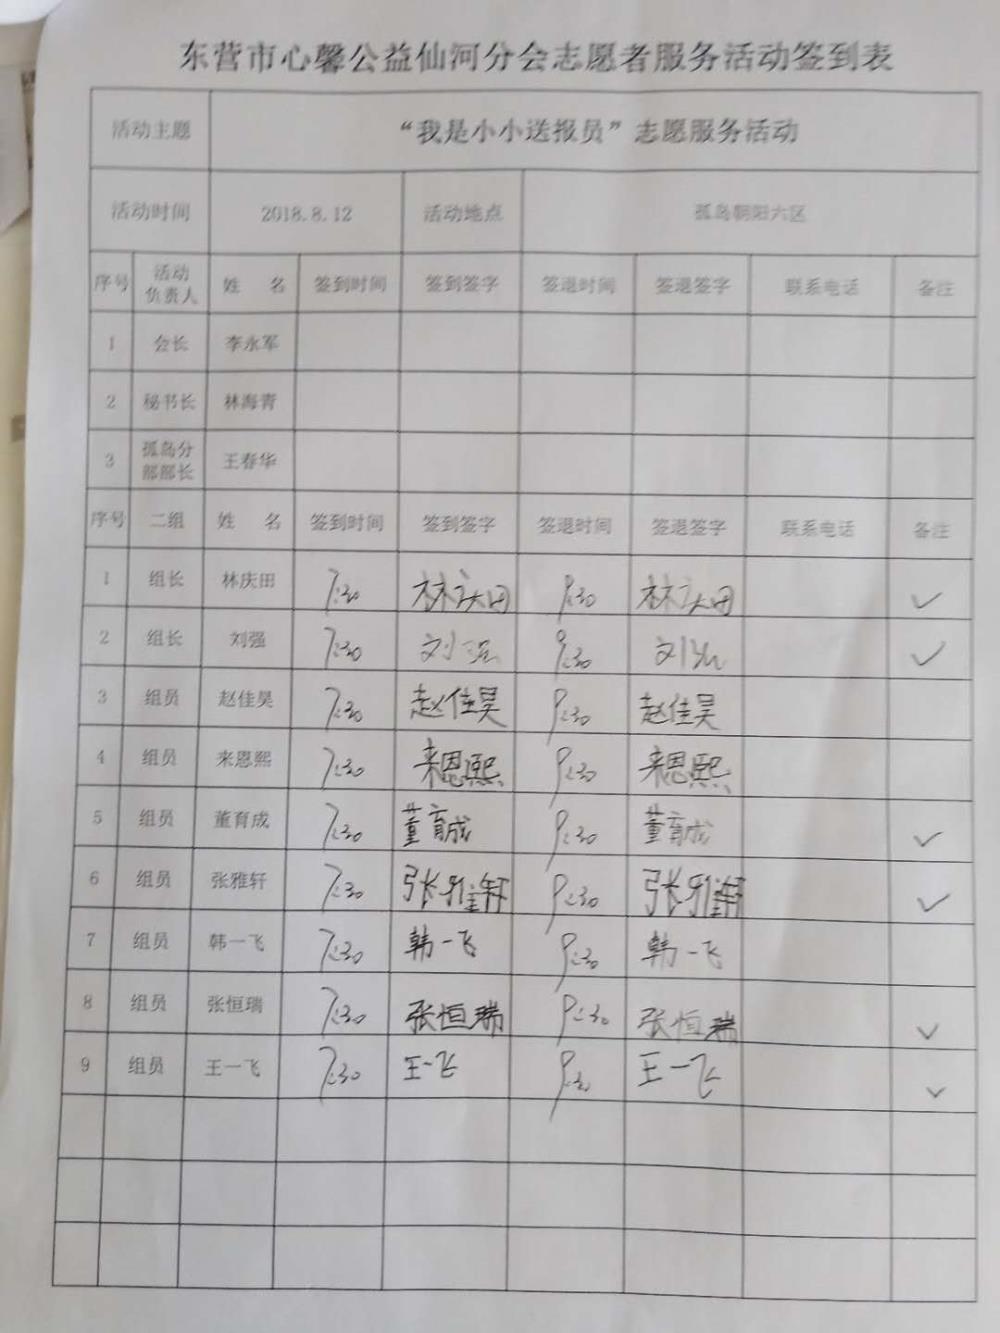 东营市心馨公益仙河分会志愿者服务活动签到表
活动主题 “我是小小送报员”志愿服务活动
活动时间 2018.8.12 活动地点 孤岛朝阳六区
序号 活动负责人 姓 名 签到时间 签到签字 签退时间 签退签字 联系电话 备注
1 会长 李永军
2 秘书长 林海青
3 孤岛分部部长 王春华
序号 二组 姓 名 签到时间 签到签字 签退时间 签退签字 联系电话 备注
1 组长 林庆田 7:30 林庆田 9:30 林庆田 ✓
2 组长 刘强 7:30 刘强 9:30 刘强 ✓
3 组员 赵佳昊 7:30 赵佳昊 9:30 赵佳昊
4 组员 来恩熙 7:30 来恩熙 9:30 来恩熙
5 组员 董育成 7:30 董育成 9:30 董育成 ✓
6 组员 张雅轩 7:30 张雅轩 9:30 张雅轩 ✓
7 组员 韩一飞 7:30 韩一飞 9:30 韩一飞
8 组员 张恒瑞 7:30 张恒瑞 9:30 张恒瑞 ✓
9 组员 王一飞 7:30 王一飞 9:30 王一飞 ✓